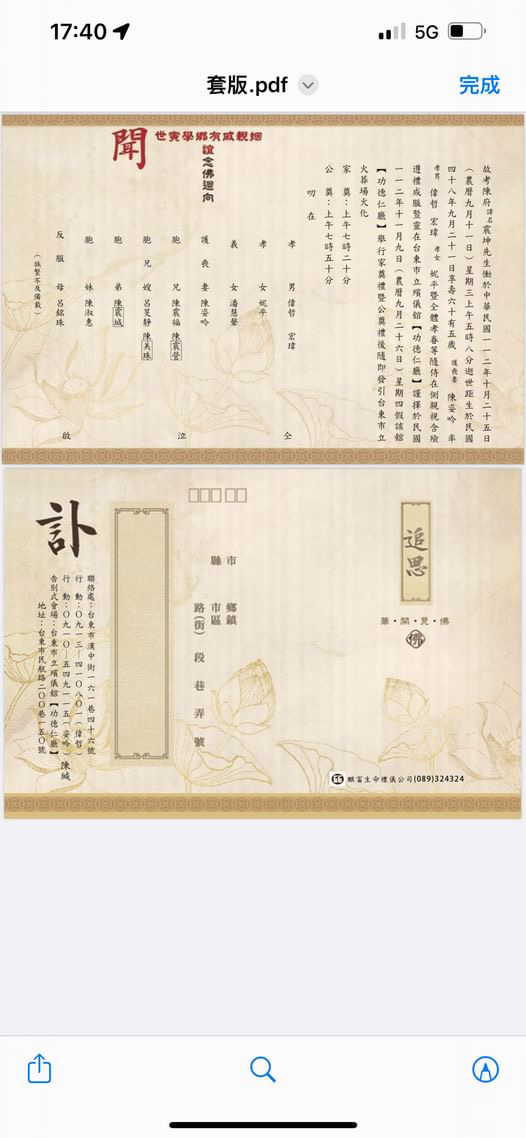 17:40
5G
套版.pdf
完成
故考陳府諱名震坤先生慟於中華民國一一二年十月二十五日
(農曆九月十一日)星期三上午五時八分逝世距生於民國
四十八年九月二十一日享壽六十有五歲 護喪妻 陳姿吟 率
孝男 偉哲 宏瑋 孝女 妮平暨全體孝眷等隨侍在側親視含殮
遵禮成服暨靈在台東市立殯儀館【功德仁廳】謹擇於民國
一一二年十一月九日(農曆九月二十六日)星期四假該館
【功德仁廳】舉行家奠禮暨公奠禮後隨即發引台東市立
火葬場火化
家 奠:上午七時二十分
公 奠:上午七時五十分
叨 在
姻親戚友鄉學寅世
誼念佛迴向
聞
孝 男 偉哲 宏瑋
孝 女 妮平
義 女 潘慧聲
護 喪 妻 陳姿吟
胞 兄 陳震福 陳震營
胞 兄 嫂 呂旻靜 陳美珠
胞 弟 陳震城
胞 妹 陳淑惠
反 服 母 呂銘珠
(族繁不及備載)
仝
泣
啟
追思
華·開·見·佛
佛
麒富生命禮儀公司(089)324324
市
縣
鄉鎮
市區
路(街) 段 巷 弄 號
訃
聯絡處:台東市漢中街一六一巷四十六號
行 動:〇九一三—四一〇八〇一(偉哲)
行 動:〇九一〇—五四九一一五(姿吟)
告別式會場:台東市立殯儀館【功德仁廳】
地址:台東市民航路二〇〇巷一五〇號
陳緘